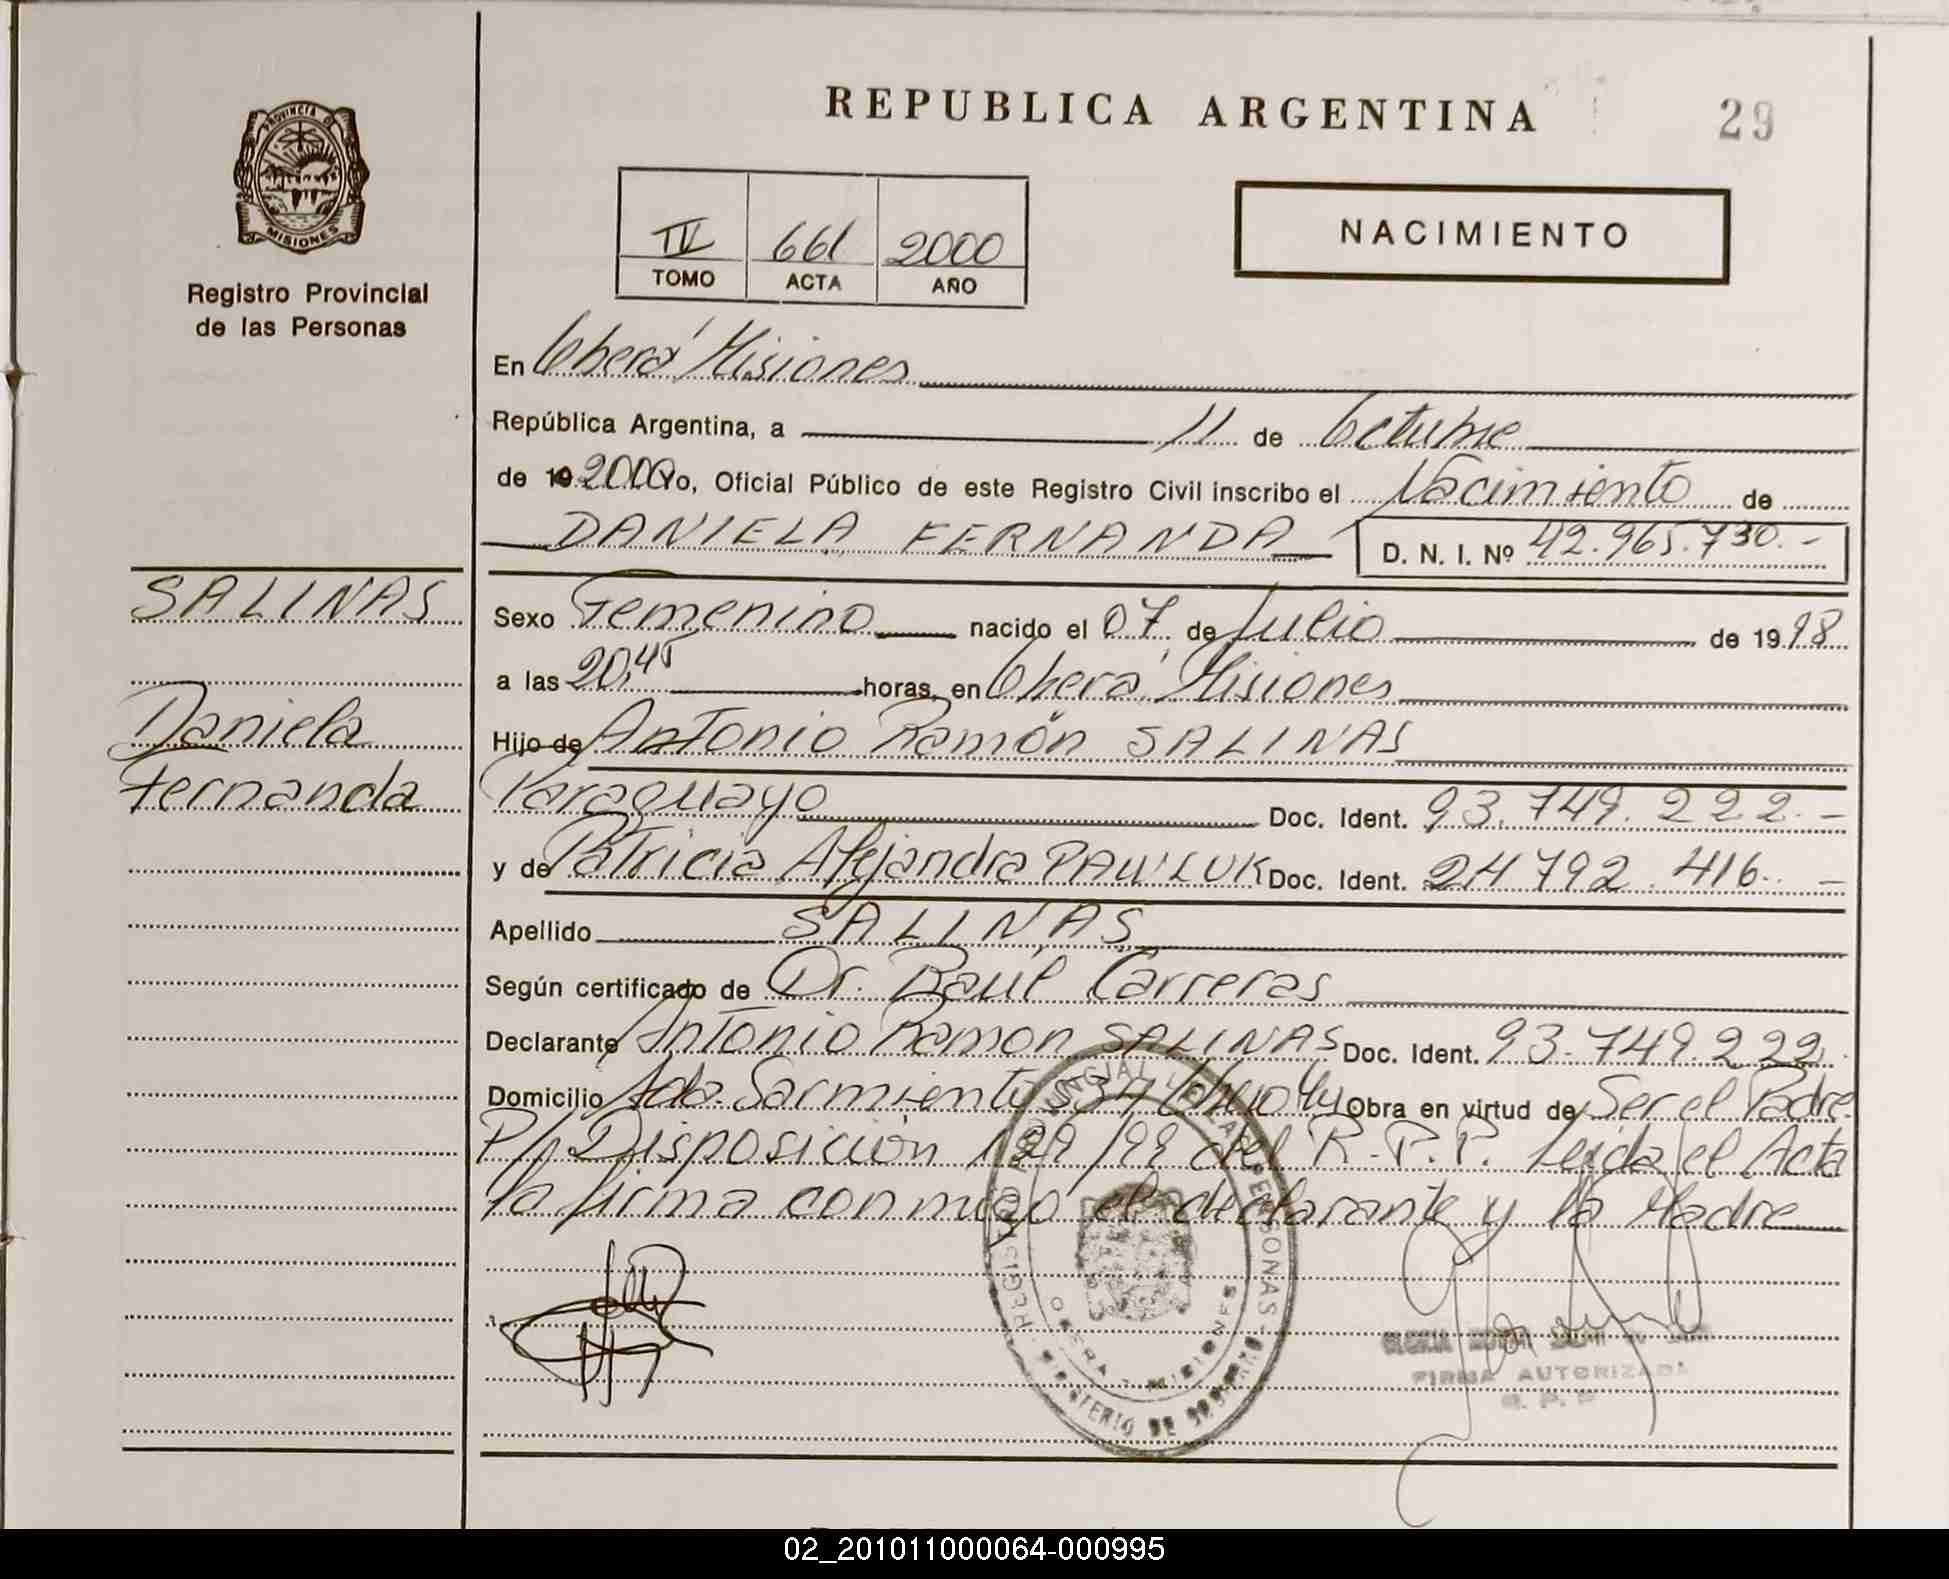 REPUBLICA ARGENTINA
29
PROVINCIA D
MISIONES
Registro Provincial
de las Personas
IV 661 2000
TOMO ACTA AÑO
NACIMIENTO
En Oberá Misiones
República Argentina, a 11 de Octubre
de 19 2000 Yo, Oficial Público de este Registro Civil inscribo el Nacimiento de
DANIELA FERNANDA D. N. I. Nº 42.965.730.-
SALINAS
Daniela
Fernanda
Sexo Femenino nacido el 07 de Julio de 1998
a las 20,45 horas, en Oberá Misiones
Hijo de Antonio Ramón SALINAS
Paraguayo Doc. Ident. 93.749.222.-
y de Patricia Alejandra PAWLUK Doc. Ident. 24792.416.-
Apellido SALINAS
Según certificado de Dr. Raúl Carreras
Declarante Antonio Ramon SALINAS Doc. Ident. 93.749.222.
Domicilio Avda. Sarmiento 534 Obra en virtud de Ser el Padre
P/ Disposición 129/99 del R.P.P. Leida el Acta
la firma conmigo el declarante y la Madre
REGISTRO PROVINCIAL DE LAS PERSONAS
OBERA - MISIONES
MINISTERIO DE GOBIERNO
FIRMA AUTORIZADA
R. P. P.
02_201011000064-000995